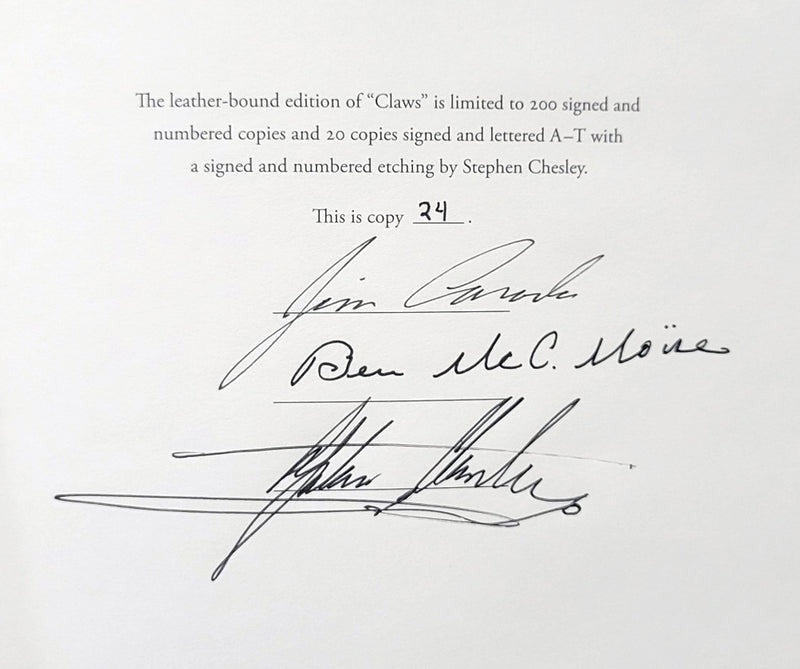 The leather-bound edition of “Claws” is limited to 200 signed and
numbered copies and 20 copies signed and lettered A–T with
a signed and numbered etching by Stephen Chesley.
This is copy 24.
Jim
Ben McC. Moïse